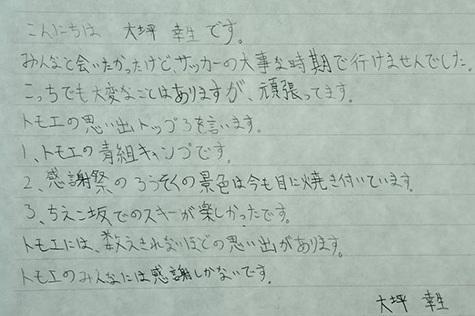 こんにちは 大坪 幸生です。
みんなと会いたかったけど、サッカーの大事な時期で行けませんでした。
こっちでも大変なことはありますが、頑張ってます。
トモエの思い出トップ3を言います。
1、トモエの青組キャンプです。
2、感謝祭のろうそくの景色は今も目に焼き付いています。
3、ちえこ坂でのスキーが楽しかったです。
トモエには、数えきれないほどの思い出があります。
トモエのみんなには感謝しかないです。
大坪 幸生